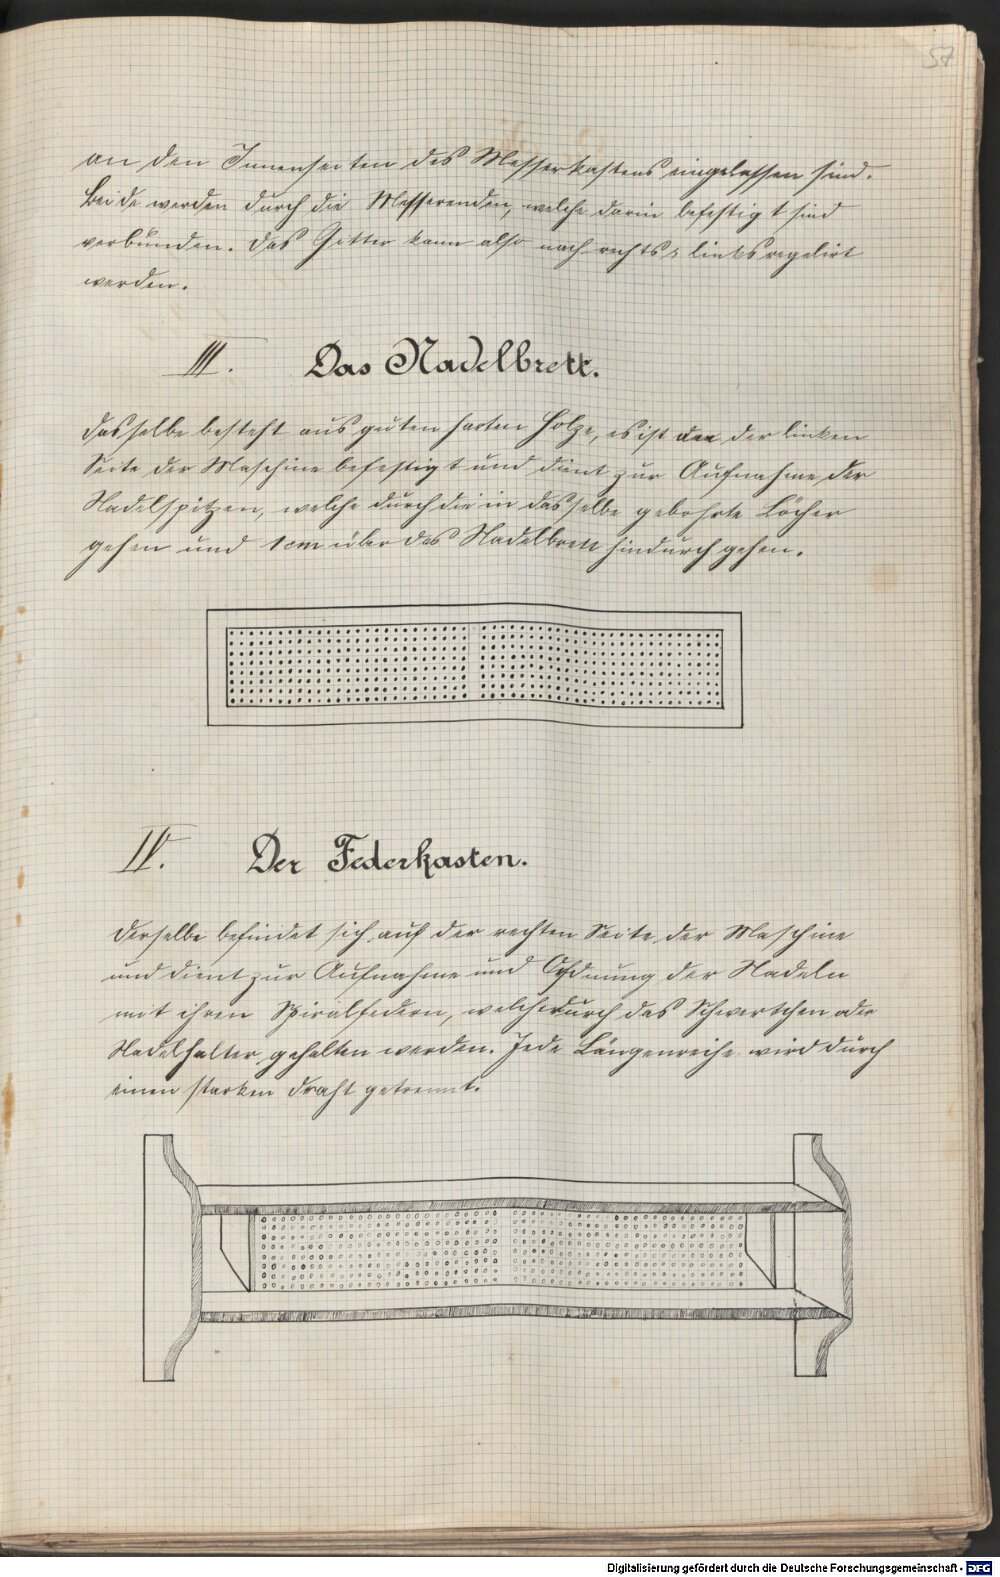 57
an den Innenseiten des Messerkastens eingelassen sind.
Beide werden durch die Messerenden, welche darin befestigt sind
verbunden. Das Gitter kann also nach rechts & links regulirt
werden.
III. Das Nadelbrett.
Dasselbe besteht aus guten harten Holze, es ist an der linken
Seite der Maschine befestigt und dient zur Aufnahme der
Nadelspitzen, welche durch die in dasselbe gebohrte Löcher
gehen und 1 cm über das Nadelbrett hindurch gehen.
IV. Der Federkasten.
Derselbe befindet sich auf der rechten Seite der Maschine
und dient zur Aufnahme und Ordnung der Nadeln
mit ihren Spiralfedern, welche durch das Schwertchen oder
Nadelhalter gehalten werden. Jede Längenreihe wird durch
einen starken Draht getrennt.
Digitalisierung gefördert durch die Deutsche Forschungsgemeinschaft - DFG